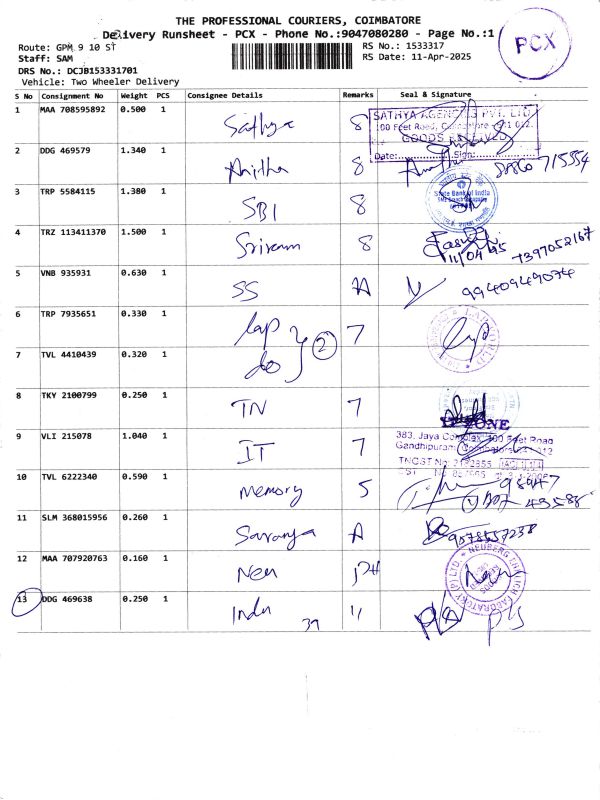 THE PROFESSIONAL COURIERS, COIMBATORE
Delivery Runsheet - PCX - Phone No.:9047080280 - Page No.:1
PCX
Route: GPM 9 10 ST
RS No.: 1533317
Staff: SAM
RS Date: 11-Apr-2025
DRS No.: DCJB153331701
Vehicle: Two Wheeler Delivery
S No Consignment No Weight PCS Consignee Details Remarks Seal & Signature
1 MAA 708595892 0.500 1 Sathya 8
SATHYA AGENCIES PVT. LTD.
100 Feet Road, Coimbatore - 641 012.
GOODS RECEIVED
Date: Sign:
2 DDG 469579 1.340 1 Anitha 8 715554
3 TRP 5584115 1.380 1 SBI 8
State Bank of India
4 TRZ 113411370 1.500 1 Sriram 8
11/04/25
7397052167
5 VNB 935931 0.630 1 SS A 9940949074
6 TRP 7935651 0.330 1 lap 2 7
7 TVL 4410439 0.320 1 do
8 TKY 2100799 0.250 1 TN 7
9 VLI 215078 1.040 1 IT 7
IT ZONE
383, Jaya Complex, 100 Feet Road
Gandhipuram, Coimbatore - 641 012
10 TVL 6222340 0.590 1 memory 5
11 SLM 368015956 0.260 1 Saranya A 9578557238
12 MAA 707920763 0.160 1 Neu PH
13 DDG 469638 0.250 1 Indu 11
39